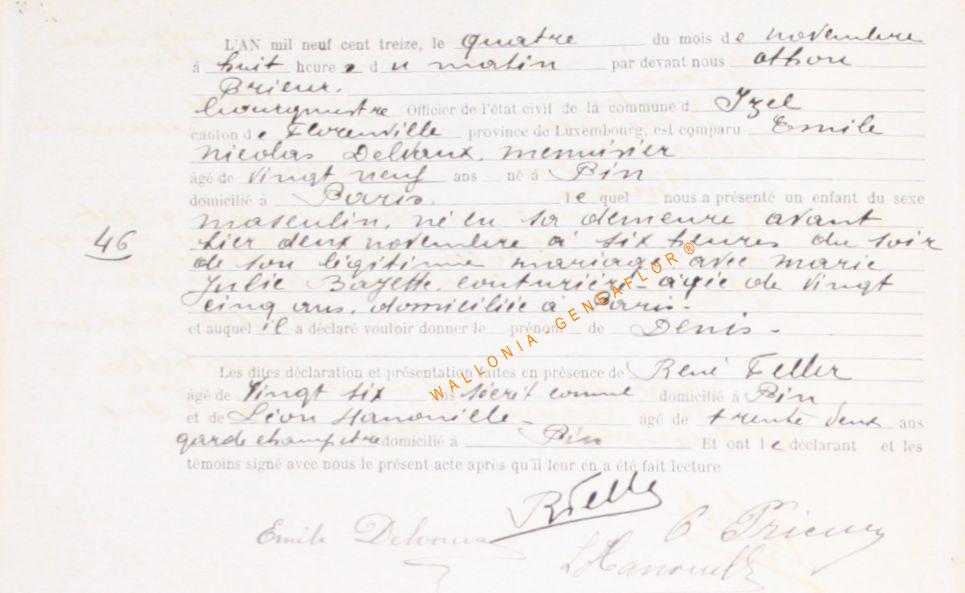 L'AN mil neuf cent treize, le quatre du mois de novembre
à huit heures du matin par devant nous Othon
Prieur.
bourgmestre Officier de l'état civil de la commune d Izel
canton de Florenville province de Luxembourg, est comparu Emile
Nicolas Delvaux, menuisier
âgé de vingt neuf ans né à Pin
domicilié à Paris. lequel nous a présenté un enfant du sexe
masculin, né en sa demeure avant
hier deux novembre à six heures du soir
de son légitime mariage avec Marie
46
Julie Bazette, couturière âgée de vingt
cinq ans, domiciliée à Paris.
et auquel il a déclaré vouloir donner le prénom de Denis.
Les dites déclaration et présentation faites en présence de René Feller
âgé de vingt six ans secrét. comme domicilié à Pin
et de Léon Hanouille, âgé de trente deux ans
garde champêtre domicilié à Pin Et ont le déclarant et les
témoins signé avec nous le présent acte après qu'il leur en a été fait lecture
RFeller
Emile Delvaux O Prieur
L Hanouille
WALLONIA-GENEAFLOR®